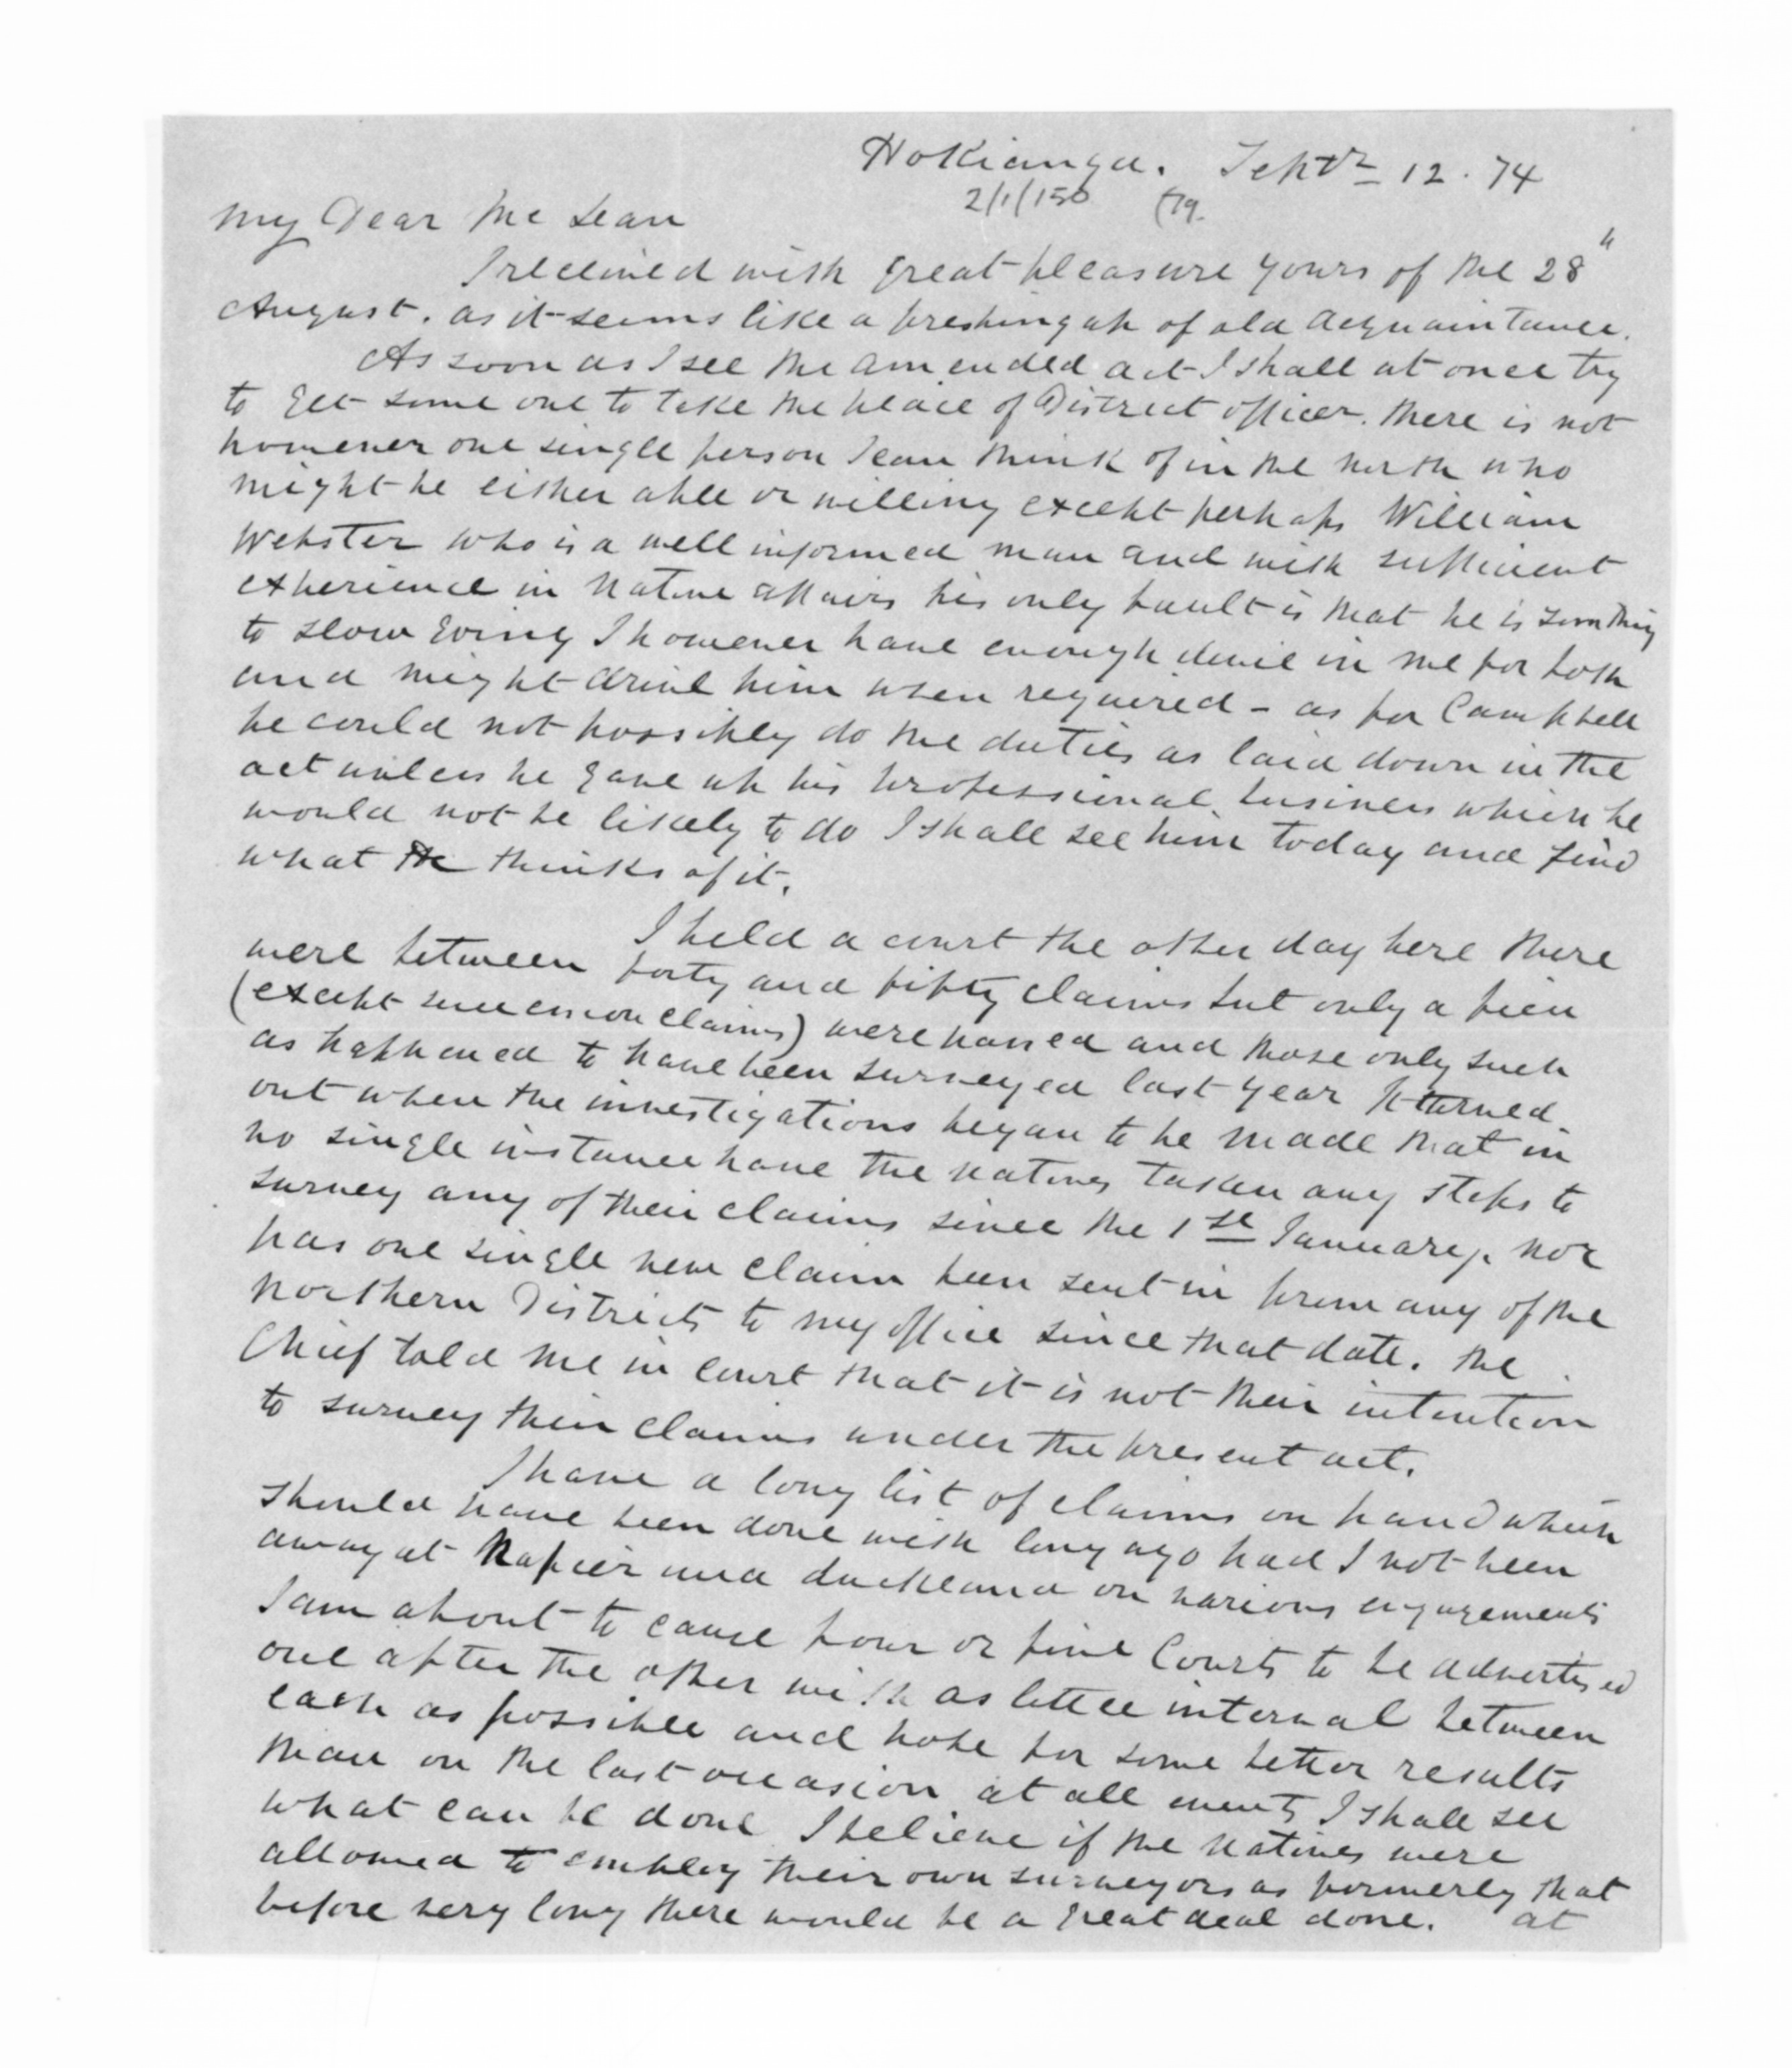 Hokianga. Septr 12. 74
2/1/150 (79.
My Dear McLean
I received with great pleasure yours of the 28"
August. as it seems like a freshing up of old acquaintance.
As soon as I see the amended act I shall at once try
to get some one to take the place of District officer. there is not
however one single person I can think of in the north who
might be either able or willing except perhaps William
Webster who is a well informed man and with sufficient
experience in Native affairs his only fault is that he is something
to slow going I however have enough devil in me for both
and might drive him when required - as for Campbell
he could not possibly do the duties as laid down in the
act unless he gave up his professional business which he
would not be likely to do I shall see him today and find
what he thinks of it.
I held a court the other day here there
were between forty and fifty claims but only a few
(except succession claims) were passed and those only such
as happened to have been surveyed last year It turned
out when the investigations began to be made that in
no single instance have the natives taken any steps to
survey any of their claims since the 1st January. nor
has one single new claim been sent in from any of the
northern Districts to my office since that date. the
Chief told me in court that it is not their intention
to survey their claims under the present act.
I have a long list of claims on hand which
should have been done with long ago had I not been
away at Napier and Auckland on various engagements
I am about to cause four or five Courts to be advertised
one after the other with as little interval between
each as possible and hope for some better results
than on the last occasion at all events I shall see
what can be done I believe if the natives were
allowed to employ their own surveyors as formerly that
before very long there would be a great deal done. at